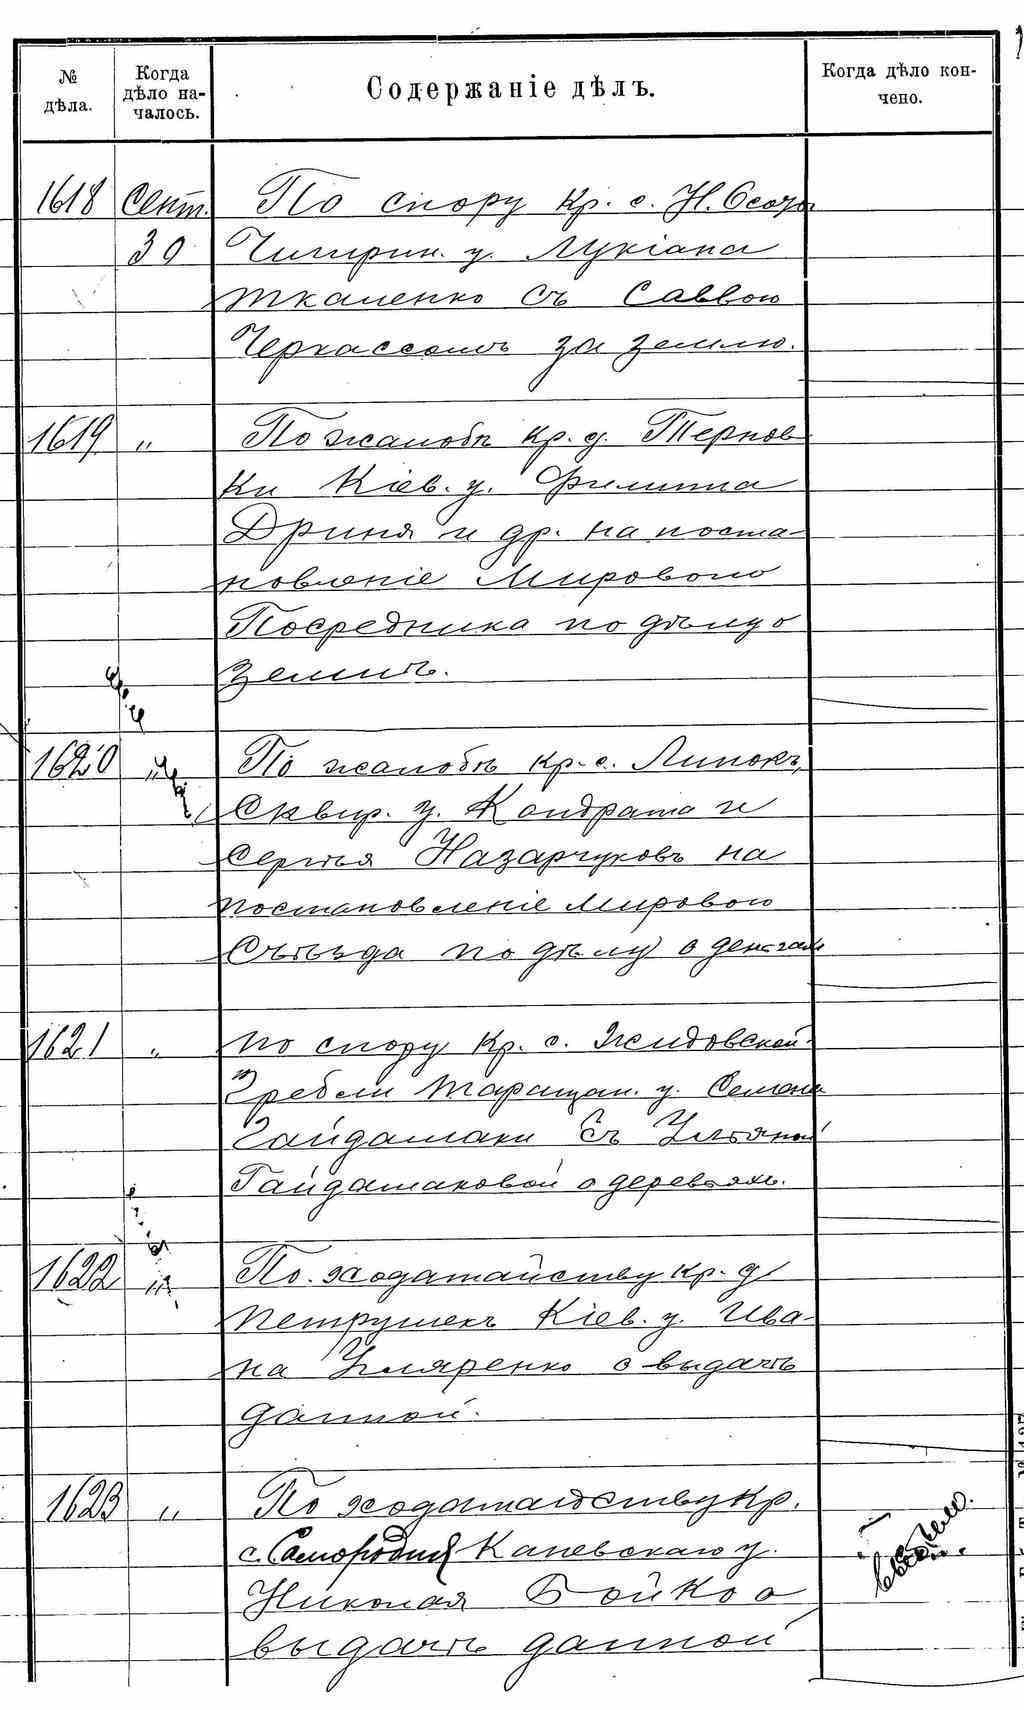 № дѣла.
Когда дѣло началось.
Содержаніе дѣлъ.
Когда дѣло кончено.
1618 Сент. По спору Кр. с. Н. Осоты
30 Чигирин. у. Лукіана
Ткаленко съ Саввою
Черкассомъ за землю.
1619 " По жалобѣ кр. д. Тернов
ки Кіев. у. Филиппа
Дриня и др. на поста-
новленіе Мирового
Посредника по дѣлу о
землѣ.
1620 " По жалобѣ кр. с. Липокъ,
Сквир. у. Кондрата и
Сергѣя Назарчуковъ на
постановленіе Мирового
Съѣзда по дѣлу о деньгах
1621 " По спору Кр. с. Жидовской-
Гребли Таращан. у. Семена
Гайдамаки съ Ульяной
Гайдамаковой о деревьяхъ.
1622 " По ходатайству кр. д
Петрушекъ Кіев. у. Ива-
на Гляренко о выдачѣ
данной.
1623 " По ходатайству Кр.
с. Самородня Каневскаго у.
Николая Бойко о
выдачѣ данной